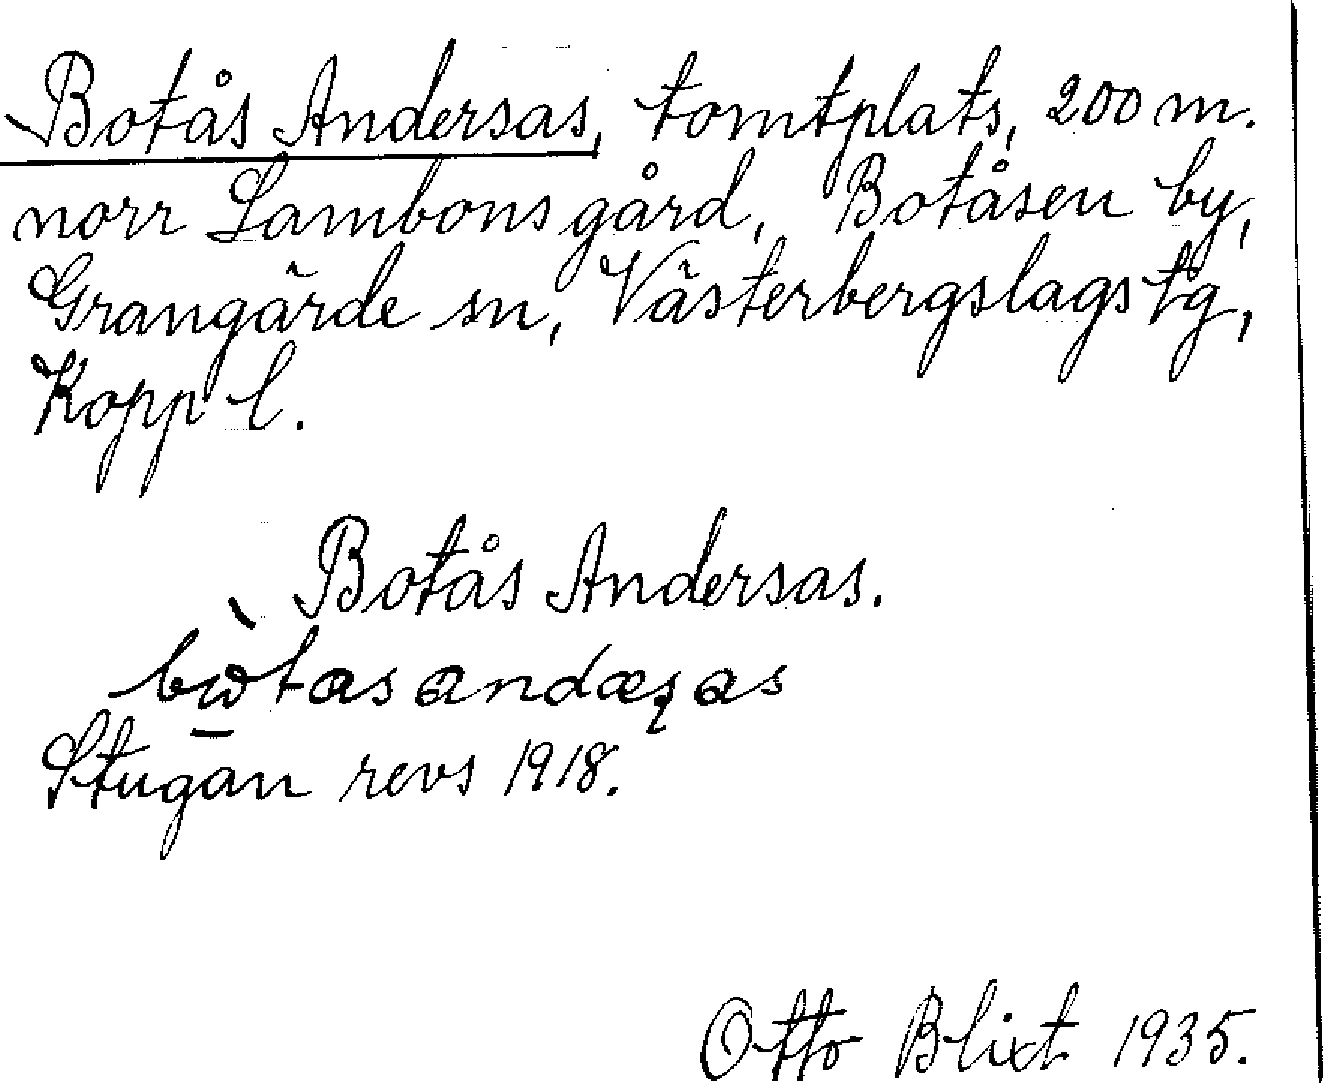 Botås Andersas, tomtplats, 200 m.
norr Lambons gård, Botåsen by,
Grangärde sn, Västerbergslags tg,
Kopp l.
Botås Andersas.
Stugan revs 1918.
Otto Blixt 1935.